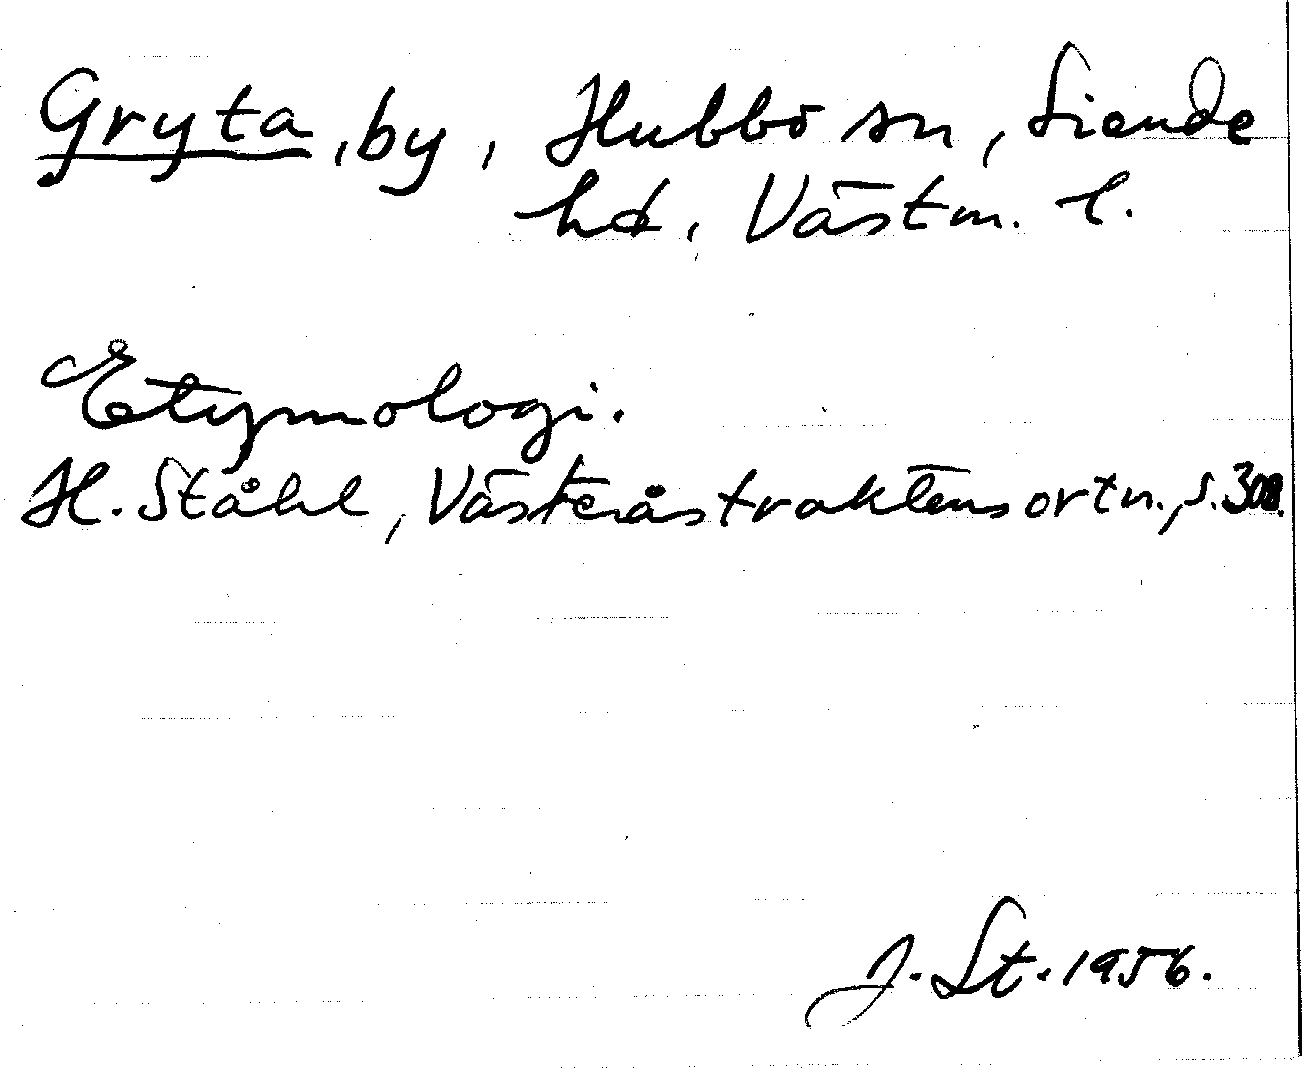 Gryta, by, Hubbo sn, Siende
hd, Västm. l.
Etymologi.
H. Ståhl, Västeråstraktens ortn., s. 308.
J. St. 1956.